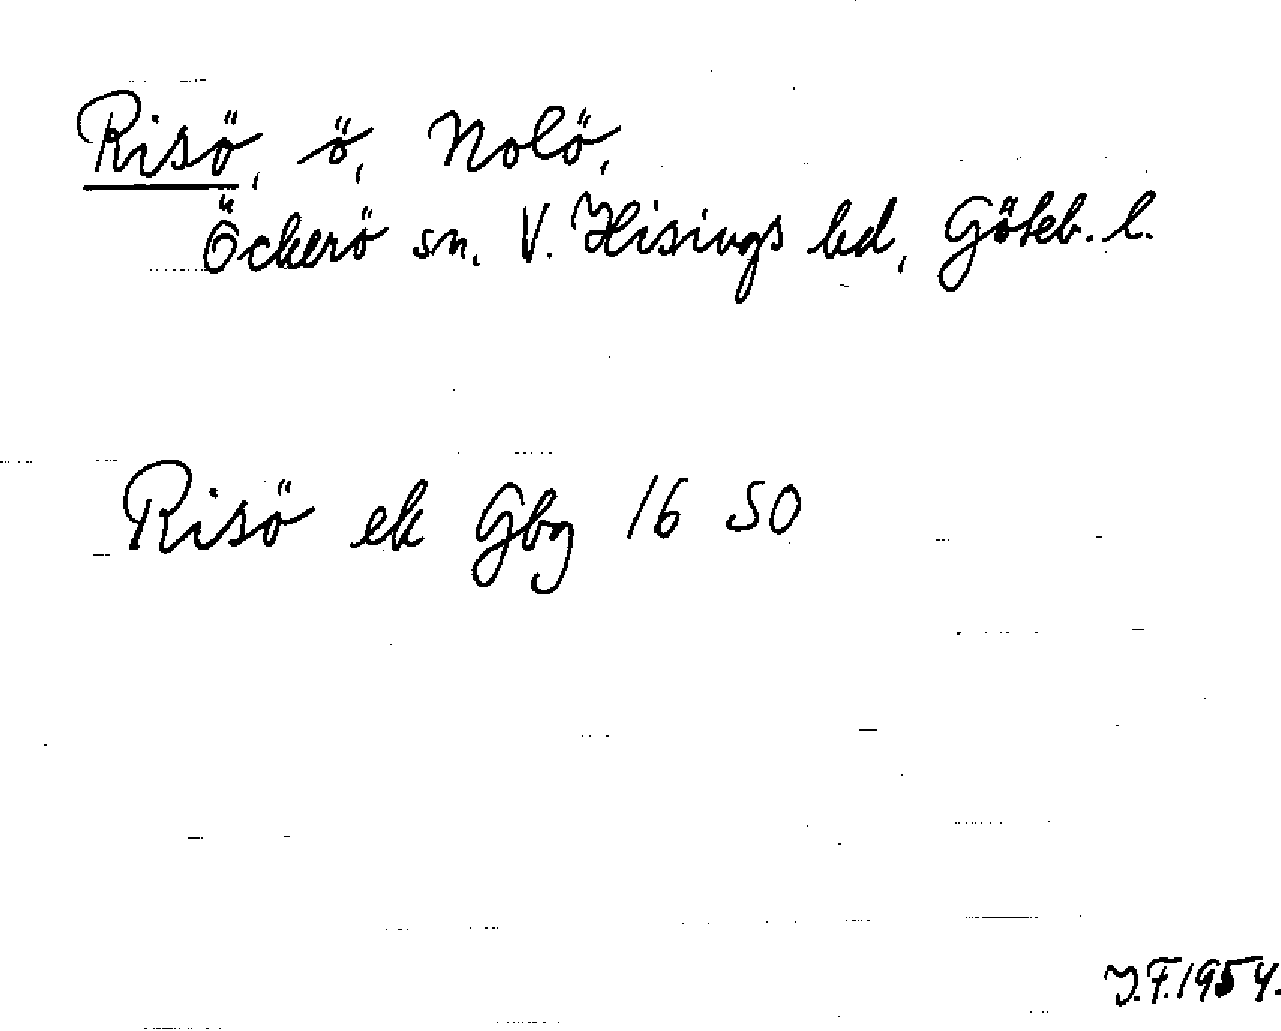 Risö, ö, Nolö,
Öckerö sn. V. Hisings hd, Göteb. l.
Risö ek Gbg 16 SO
J.F.1954.